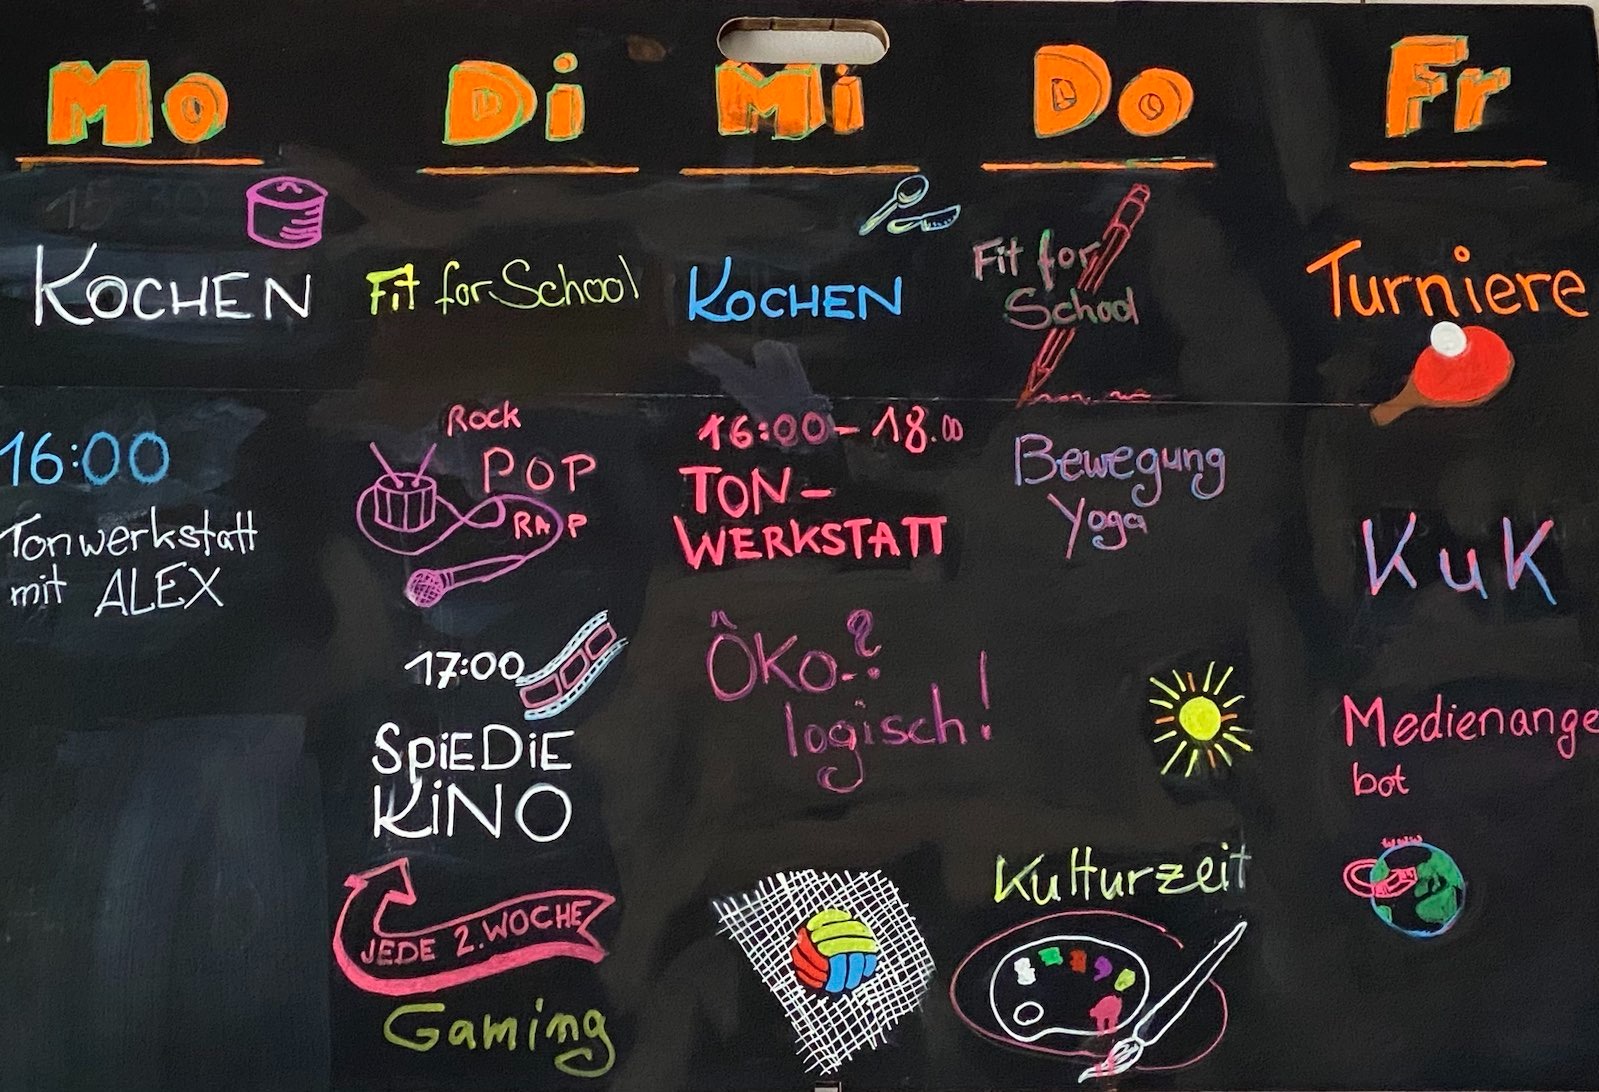 Mo
KOCHEN
16:00
Tonwerkstatt
mit ALEX
Di
Fit for School
Rock
POP
RAP
17:00
SPiEDiE
KiNO
JEDE 2. WOCHE
Gaming
Mi
KOCHEN
16:00 - 18.00
TON-
WERKSTATT
ÖKo.?
logisch!
Do
Fit for
School
Bewegung
Yoga
Kulturzeit
Fr
Turniere
KuK
Medienange
bot
www